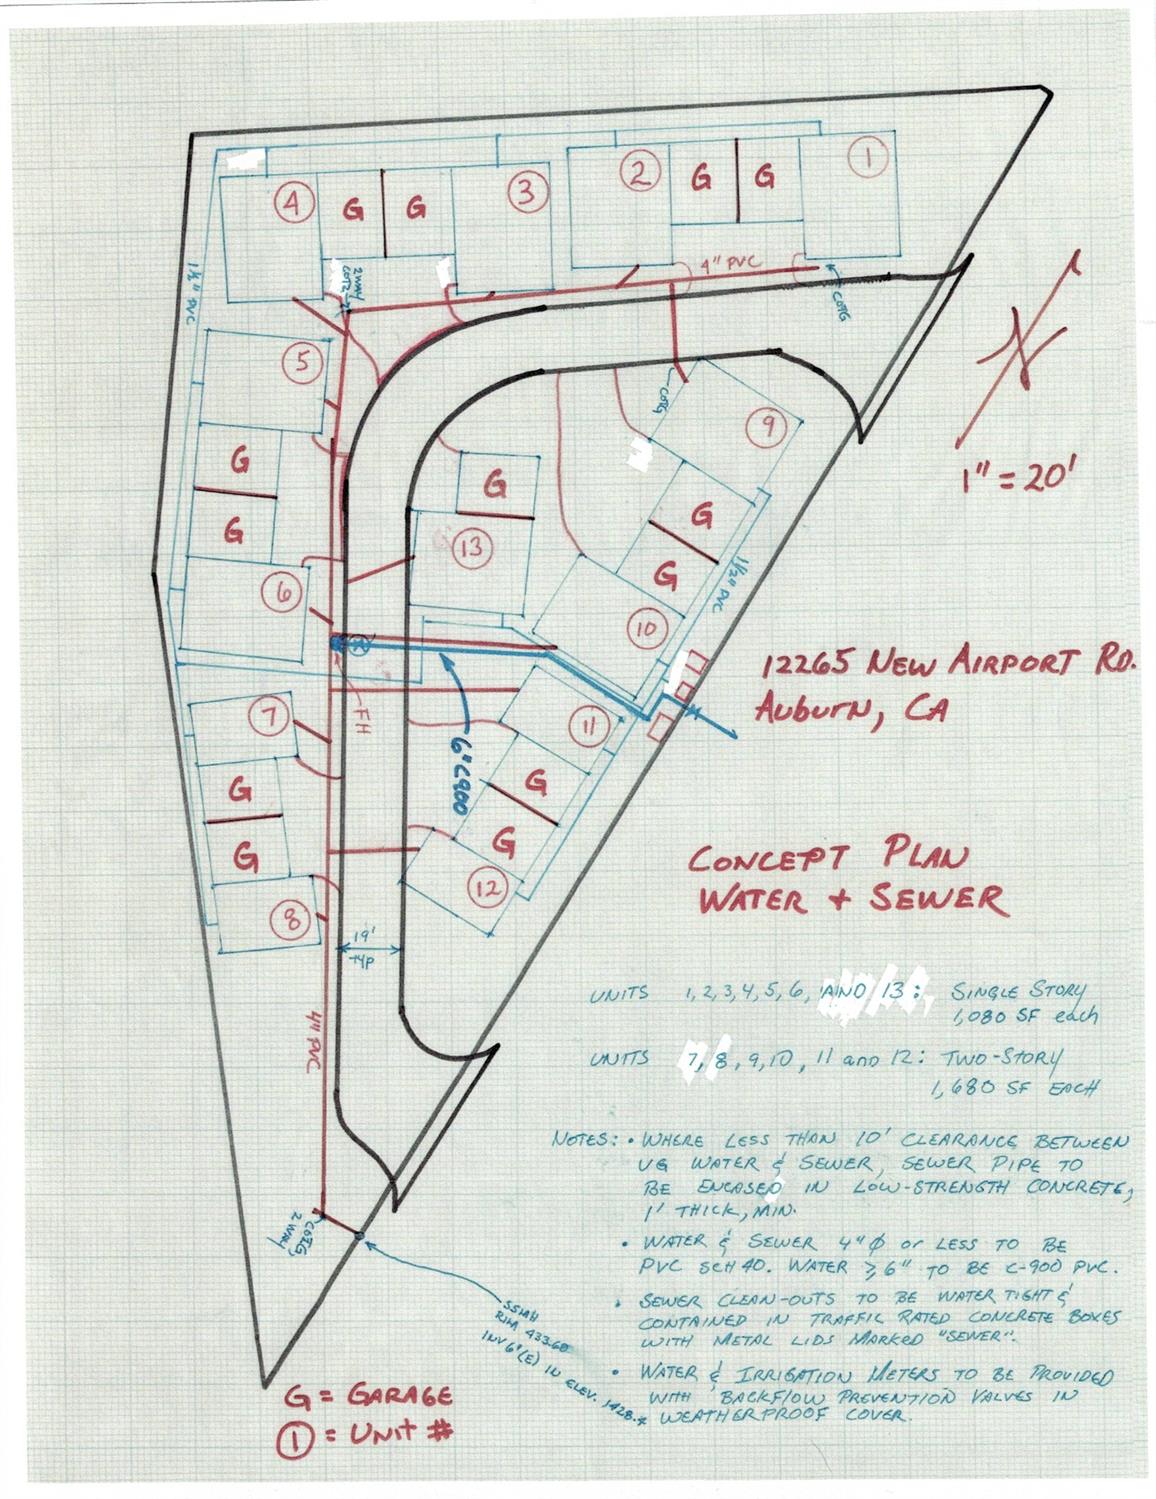 1
2
G
G
3
4
G
G
4" PVC
2 WAY
COTG
COTG
1½" PVC
5
COTG
9
1" = 20'
G
G
G
13
G
G
1½" PVC
6
10
12265 NEW AIRPORT RD.
AUBURN, CA
FH
7
11
6" C900
G
G
G
G
CONCEPT PLAN
WATER + SEWER
12
8
19'
TYP
UNITS 1, 2, 3, 4, 5, 6, AND 13: SINGLE STORY
1,080 SF each
4" PVC
UNITS 7, 8, 9, 10, 11 and 12: TWO-STORY
1,680 SF EACH
NOTES: • WHERE LESS THAN 10' CLEARANCE BETWEEN
UG WATER & SEWER, SEWER PIPE TO
BE ENCASED IN LOW-STRENGTH CONCRETE,
1' THICK, MIN.
• WATER & SEWER 4" Ø OR LESS TO BE
PVC SCH 40. WATER ≥ 6" TO BE C-900 PVC.
• SEWER CLEAN-OUTS TO BE WATER TIGHT &
CONTAINED IN TRAFFIC RATED CONCRETE BOXES
WITH METAL LIDS MARKED "SEWER".
• WATER & IRRIGATION METERS TO BE PROVIDED
WITH BACKFLOW PREVENTION VALVES IN
WEATHERPROOF COVER.
COTG
2 WAY
SSMH
RIM 433.60
INV 6" (E) IN ELEV. 1428.
G = GARAGE
1 = UNIT #